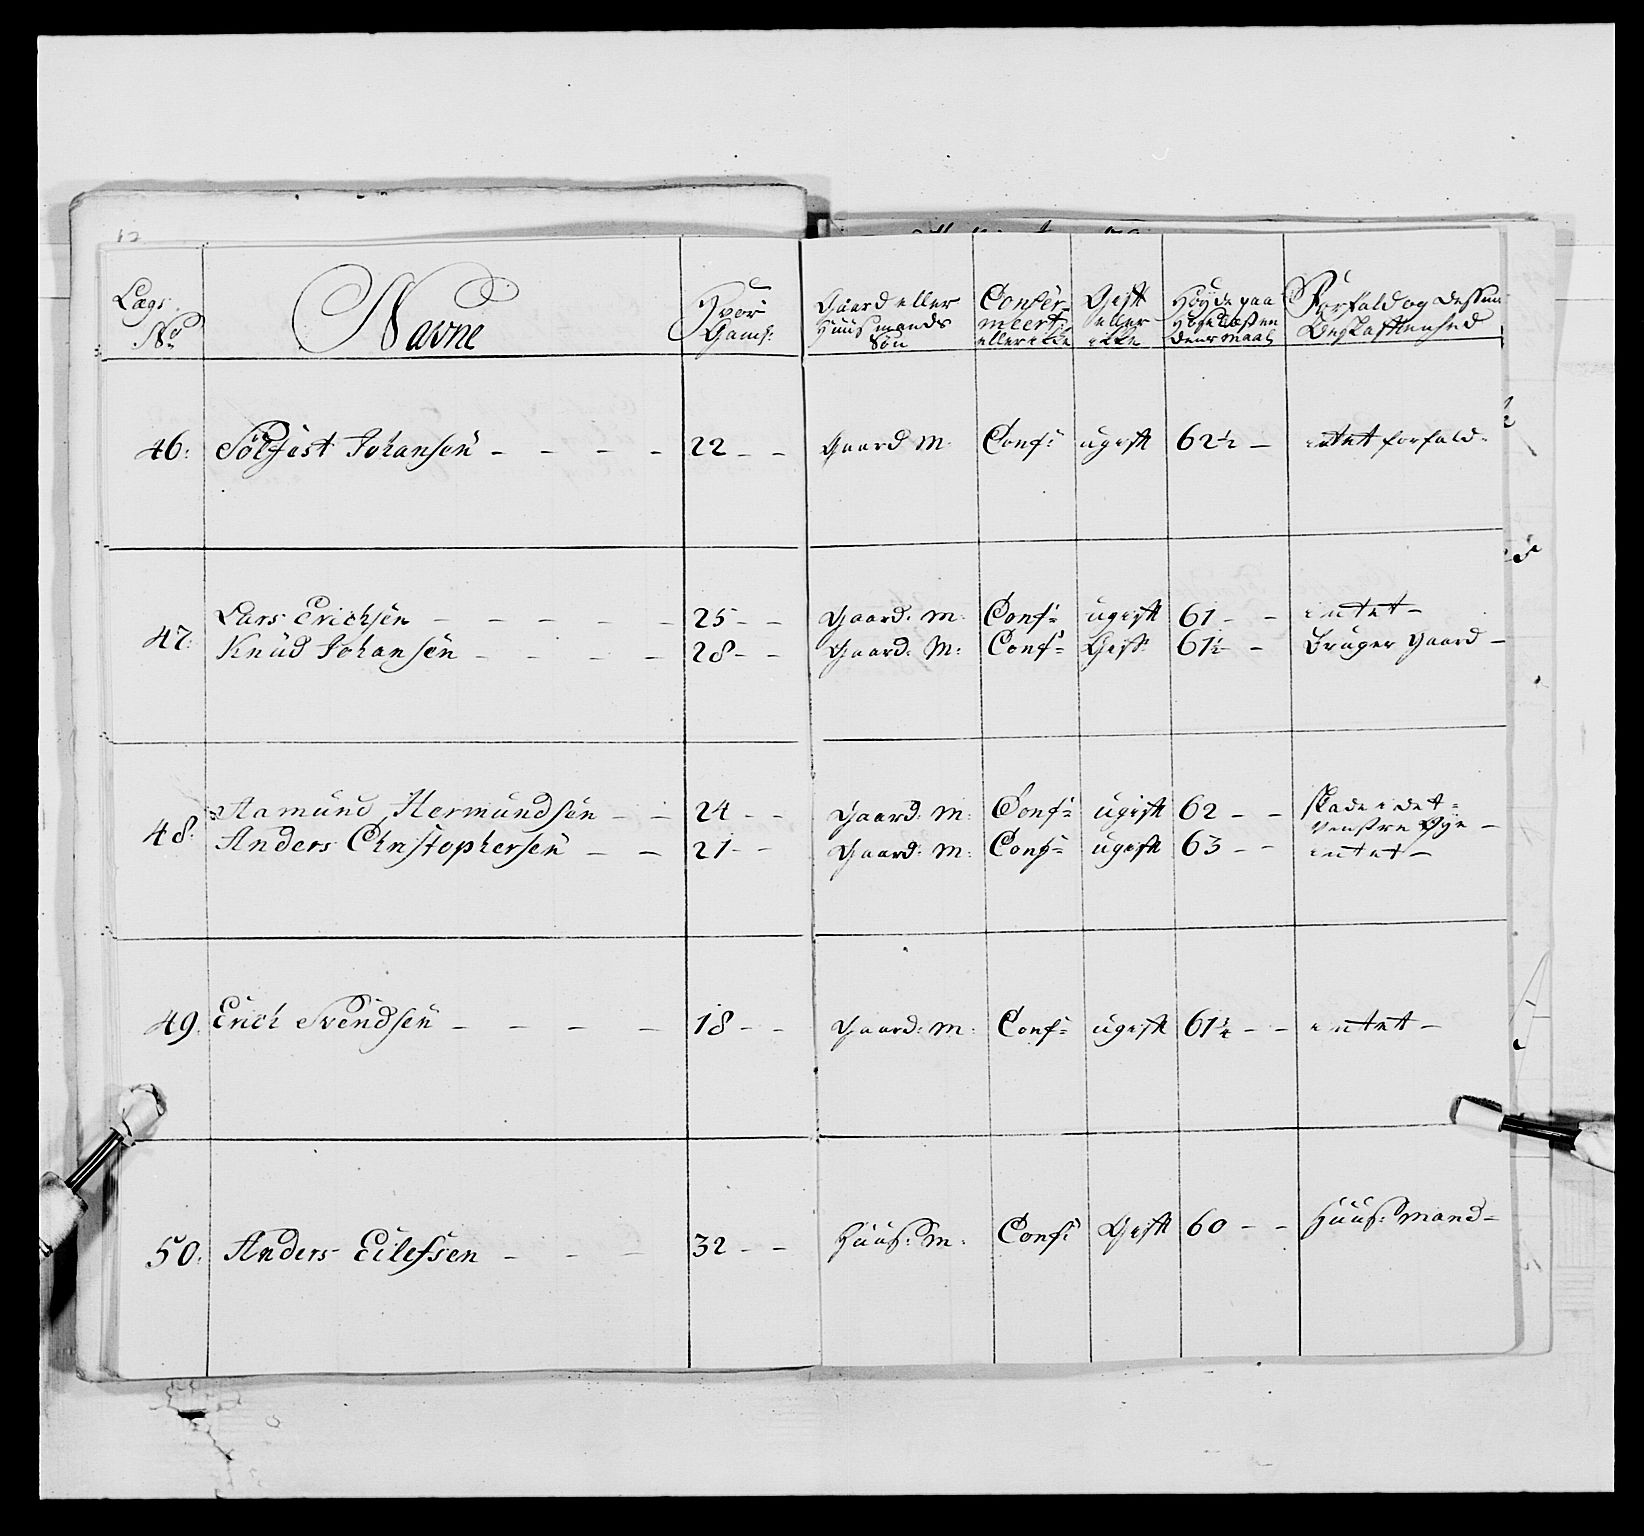 Lægs No | Navne | Hvor Gaml: | Gaard eller Huusmands Søn | Confir meert eller ikke | Gift eller ikke | Høyde paa Hosesokken Denr Maal | Forfald og dessen Beskaffenhed
46: Sölfest Johansen - - - - 22 - - Gaard M. Conf: ugift 62½ - intet forfald -
47: Lars Erichsen - - - - - 25 - - Gaard: M: Conf: ugift 61 - - intet -
Knud Johansen - - - - 28 - - Gaard: M: Conf: Gift 61½ - Bruger Gaard -
48: Aamund Hermundsen - - 24 - - Gaard: M: Conf: ugift 62 - - skade i det
venstre Øye -
Anders Christophersen - - 21 - - Gaard: M: Conf: ugift 63 - - intet -
49. Erich Svendsen - - - - 18 - - Gaard: M: Conf: ugift 61¼ - - intet -
50. Anders Eilefsen - - - 32 - - Huus: M: Conf: Gift 60 - - Huus: Mand -